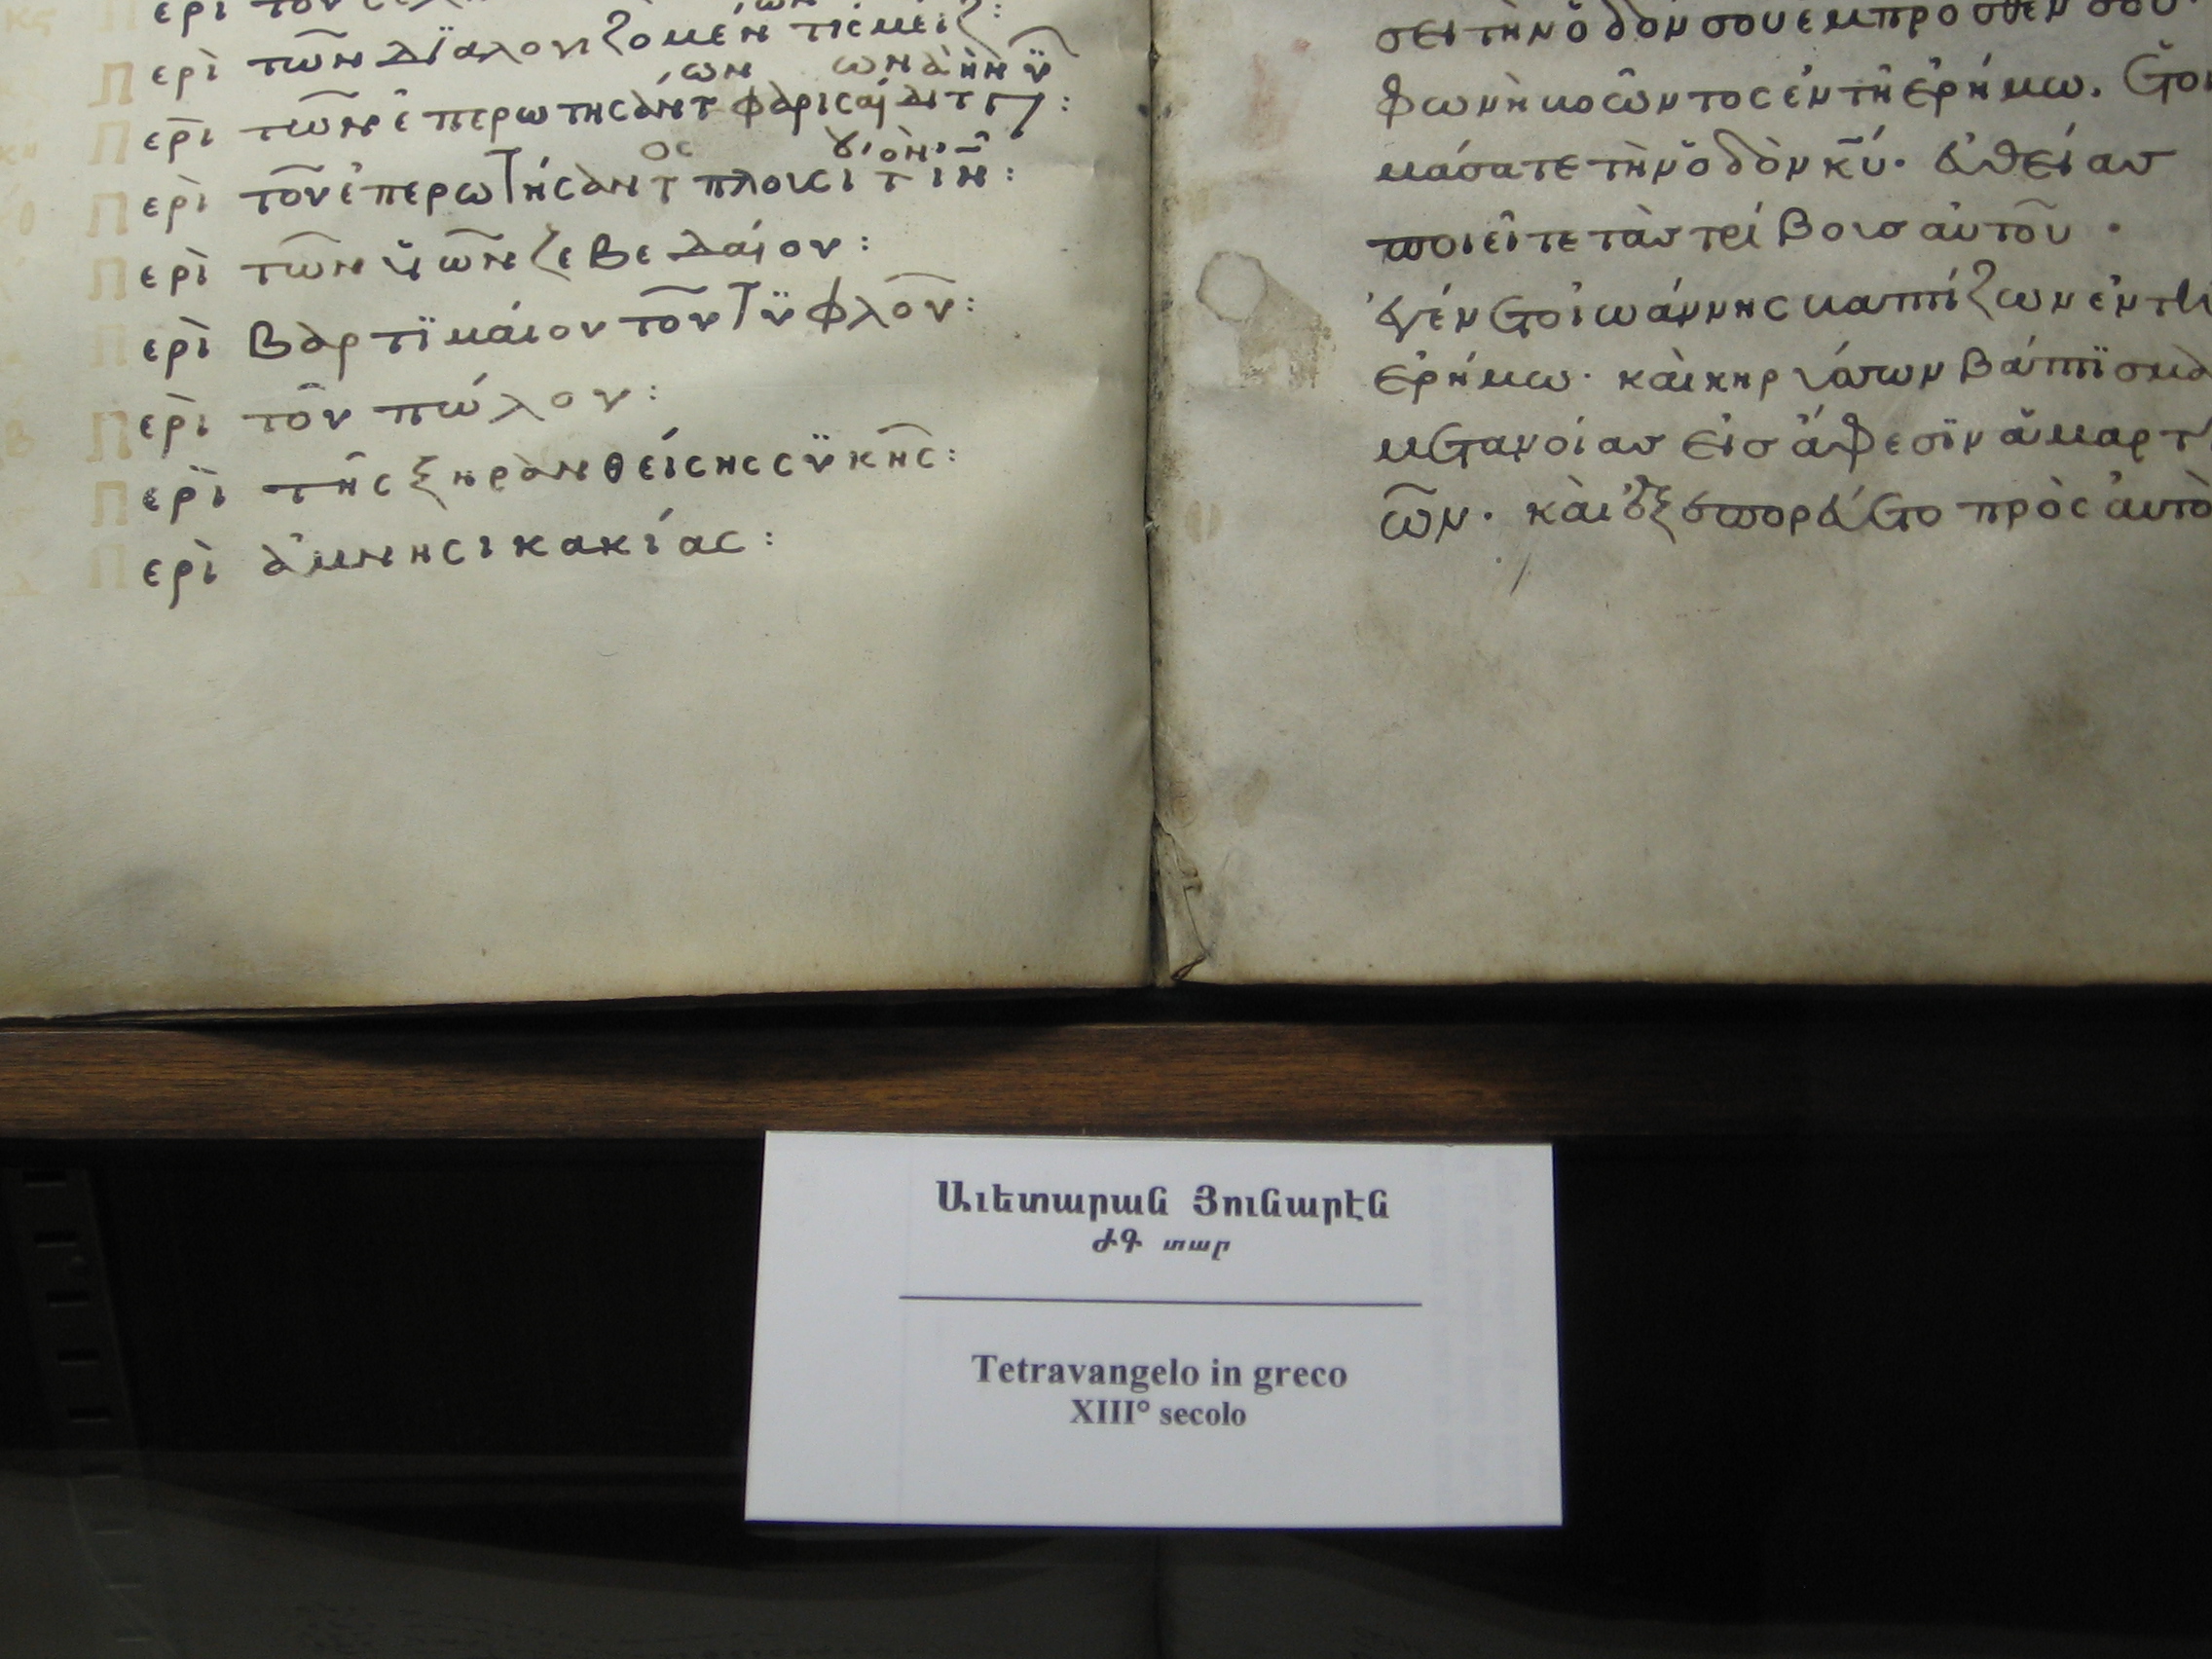 Περὶ τῶν διαλογιζομέν τίς μείζ:
Περὶ τῶν ἐπερωτησάντ φαρισαί
Περὶ τοῦ ἐπερωτήσαντος πλουσί
Περὶ τῶν ὑιῶν ζεβεδάιου:
Περὶ βαρτϊμάιου τοῦ τϋφλοῦ:
Περὶ τοῦ πώλου:
Περὶ τῆς ξηρανθείσης σϋκῆς:
Περὶ ἀμνησικακίας:
σει τὴν ὁδόν σου ἔμπροσθέν σου·
φωνὴ βοῶντος ἐν τῆ ἐρήμω. ἑτοι
μάσατε τὴν ὁδὸν κ̅υ̅· ἐυθείας
ποιεῖτε τὰς τρίβους ἀυτοῦ·
ἐγένετο ἰωάννης βαπτίζων ἐν τῆ
ἐρήμω· κὰι κηρύσσων βάπτϊσμα
μετανοίας ἐις ἄφεσϊν ἁμαρτι
ῶν· κὰι ἐξεπορεύετο πρὸς ἀυτὸ
Աւետարան Յունարէն
ԺԳ տար
Tetravangelo in greco
XIII° secolo